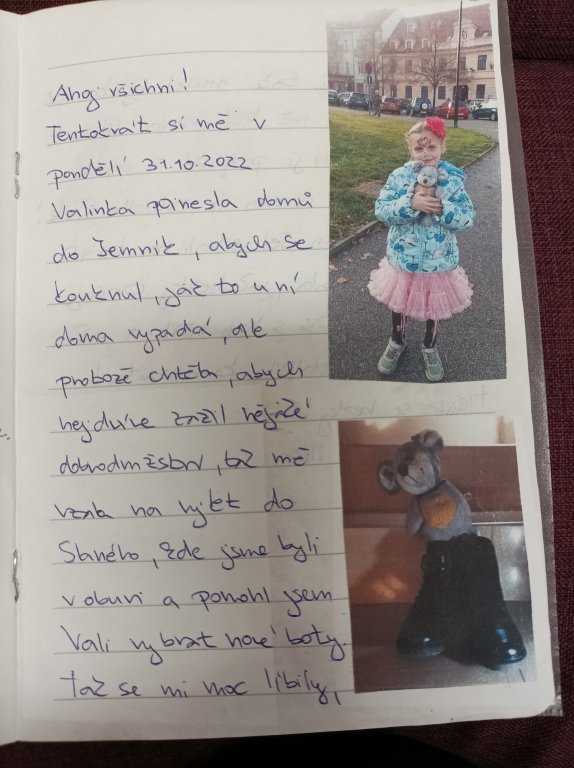 Ahoj všichni!
Tentokrát si mě v
pondělí 31.10.2022
Valinka přinesla domů
do Jemník, abych se
kouknul, jak to u ní
doma vypadá, ale
protože chtěla, abych
nejdříve zažil nějaké
dobrodružství, tak mě
vzala na výlet do
Slaného, kde jsme byli
v obuvi a pomohl jsem
Vali vybrat nové boty.
Tak se mi moc líbily,